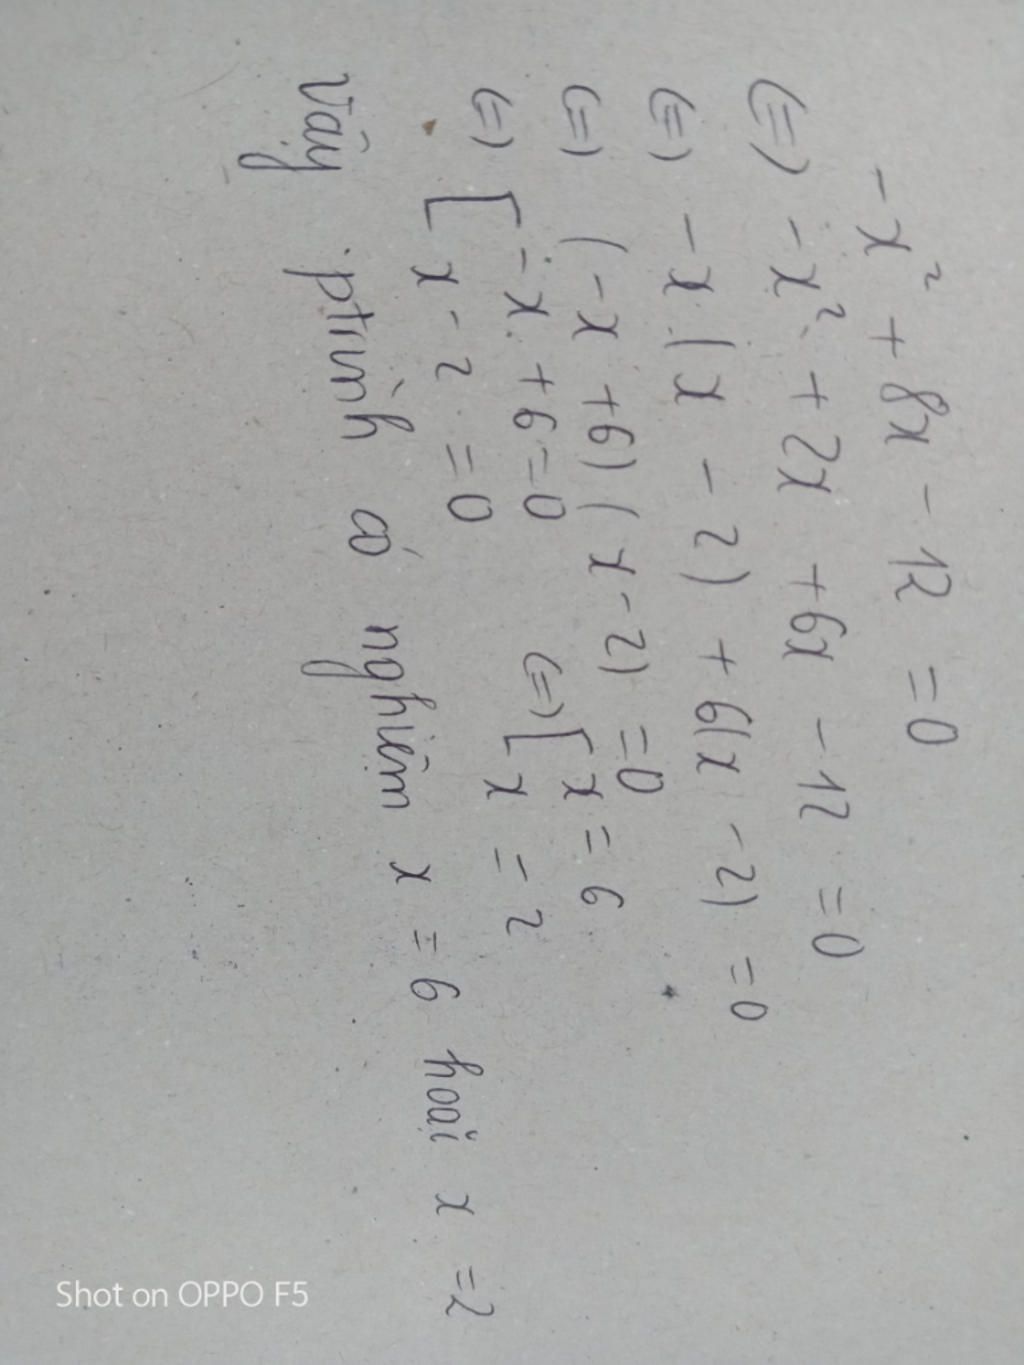 -x² + 8x - 12 = 0
(=) -x² + 2x + 6x - 12 = 0
(=) -x (x - 2) + 6(x - 2) = 0
(=) (-x + 6) (x - 2) = 0
(=) [ -x + 6 = 0 (=) [ x = 6
x - 2 = 0 x = 2
Vậy ptrình có nghiệm x = 6 hoặc x = 2
Shot on OPPO F5